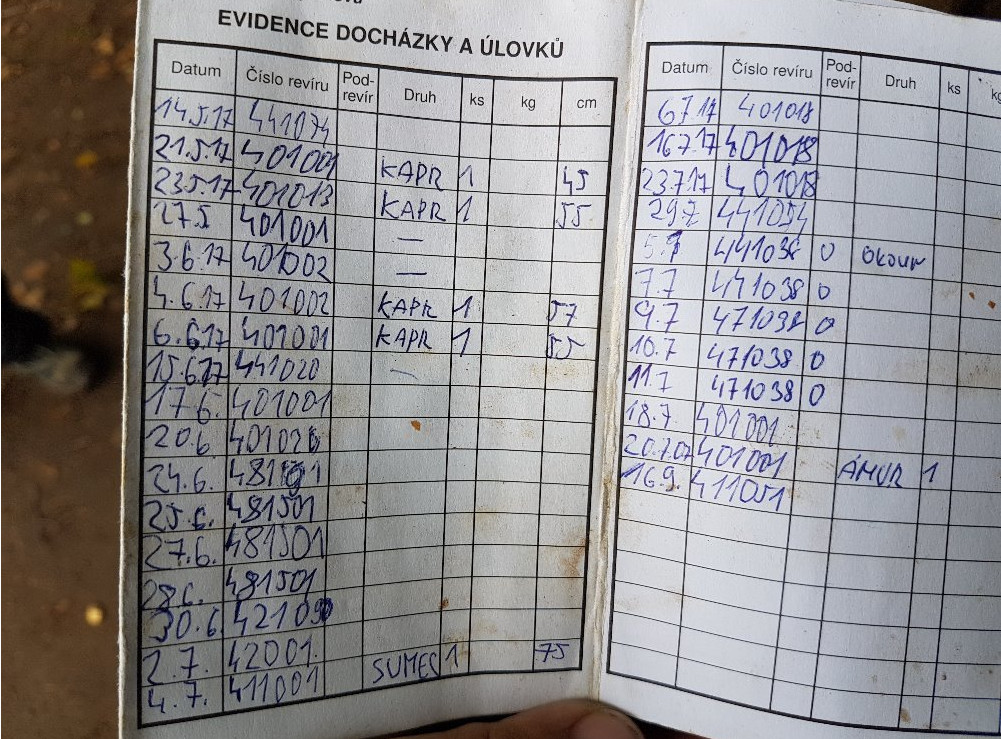 EVIDENCE DOCHÁZKY A ÚLOVKŮ
Datum Číslo revíru Pod-revír Druh ks kg cm
14.5.17 441074
21.5.17 401001 KAPR 1 45
23.5.17 401013 KAPR 1 55
27.5 401001 —
3.6.17 401002 —
4.6.17 401002 KAPR 1 57
6.6.17 401001 KAPR 1 55
15.6.17 441020 —
17.6. 401001
20.6
24.6.
25.6. 481501
27.6. 481501
28.6. 481501
30.6
2.7. 42001. SUMEC 1 75
4.7. 411001
Datum Číslo revíru Pod-revír Druh ks
6.7.17 401018
16.7.17 401018
23.7.17 401018
29.7 441054
441038 0 OKOUN
7.7 471038 0
9.7 471038 0
10.7 471038 0
11.7 471038 0
18.7. 401001
20.7.07 401001 ÁMUR 1
16.9. 411051